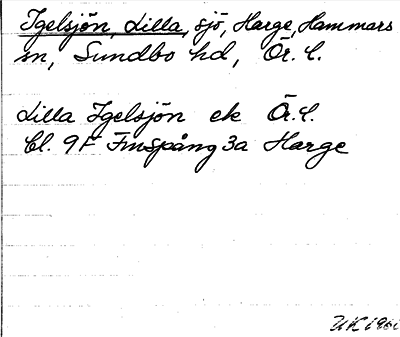 Igelsjön, Lilla, sjö, Harge, Hammars
sn, Sundbo hd, Ör. l.
Lilla Igelsjön ek Ör. l.
Bl. 9F Finspång 3a Harge